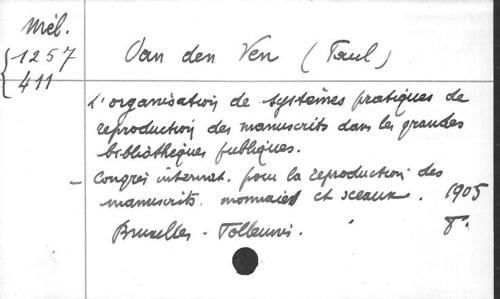 Mél.
1257
411
Van den Ven (Paul)
L'organisation de systèmes pratiques de
reproduction des manuscrits dans les grandes
bibliothèques publiques.
- Congrès internat. pour la reproduction des
manuscrits. monnaies et sceaux. 1905
Bruxelles - 8°.